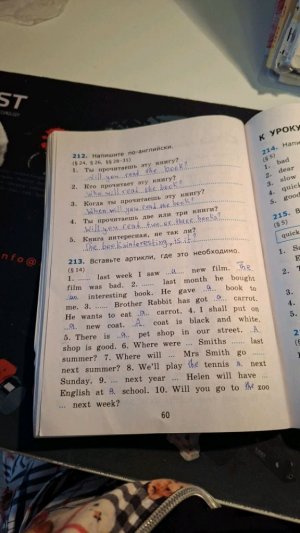 ST
212. Напишите по-английски.
(§ 24, § 26, §§ 29–31)
1. Ты прочитаешь эту книгу?
Will you read the book?
2. Кто прочитает эту книгу?
Who will read the book?
3. Когда ты прочитаешь эту книгу?
When will you read the book?
4. Ты прочитаешь две или три книги?
Will you read two or three books?
5. Книга интересная, не так ли?
The book interesting, is it
213. Вставьте артикли, где это необходимо.
(§ 14)
1. ... last week I saw a new film. The
film was bad. 2. ... last month he bought
an interesting book. He gave a book to
me. 3. ... Brother Rabbit has got a carrot.
He wants to eat a carrot. 4. I shall put on
a new coat. coat is black and white.
5. There is a pet shop in our street. A
shop is good. 6. Where were ... Smiths ... last
summer? 7. Where will ... Mrs Smith go ...
next summer? 8. We'll play the tennis a next
Sunday. 9. ... next year ... Helen will have ...
English at a school. 10. Will you go to the zoo
... next week?
60
К УРОКУ
214.
(§ 5)
1. bad
2. dear
3. slow
4.
5.
215.
(§ 5)